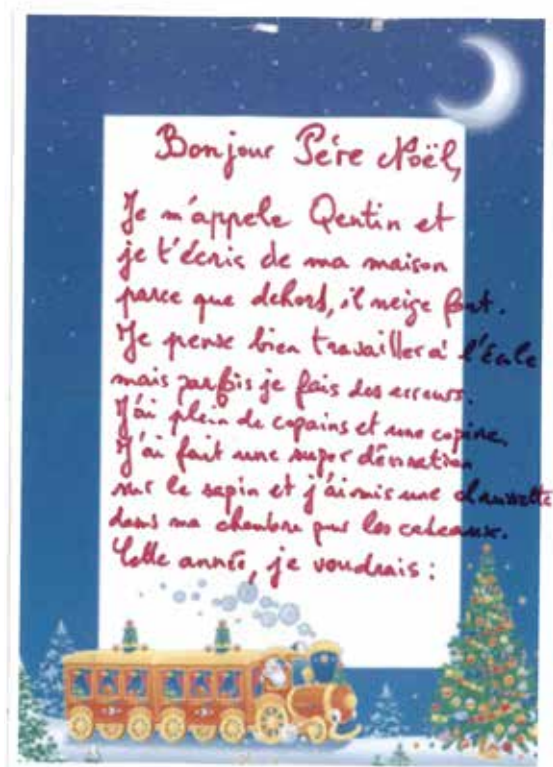 Bonjour Père Noël,
Je m'appele Qentin et
je t'écris de ma maison
parce que dehord, il neige fort.
Je pense bien travailler à l'école
mais parfois je fais des erreurs.
J'ai plein de copains et une copine.
J'ai fait une super décoration
sur le sapin et j'ai mis une chaussette
dans ma chambre pour les cadeaux.
Cette année, je voudrais :